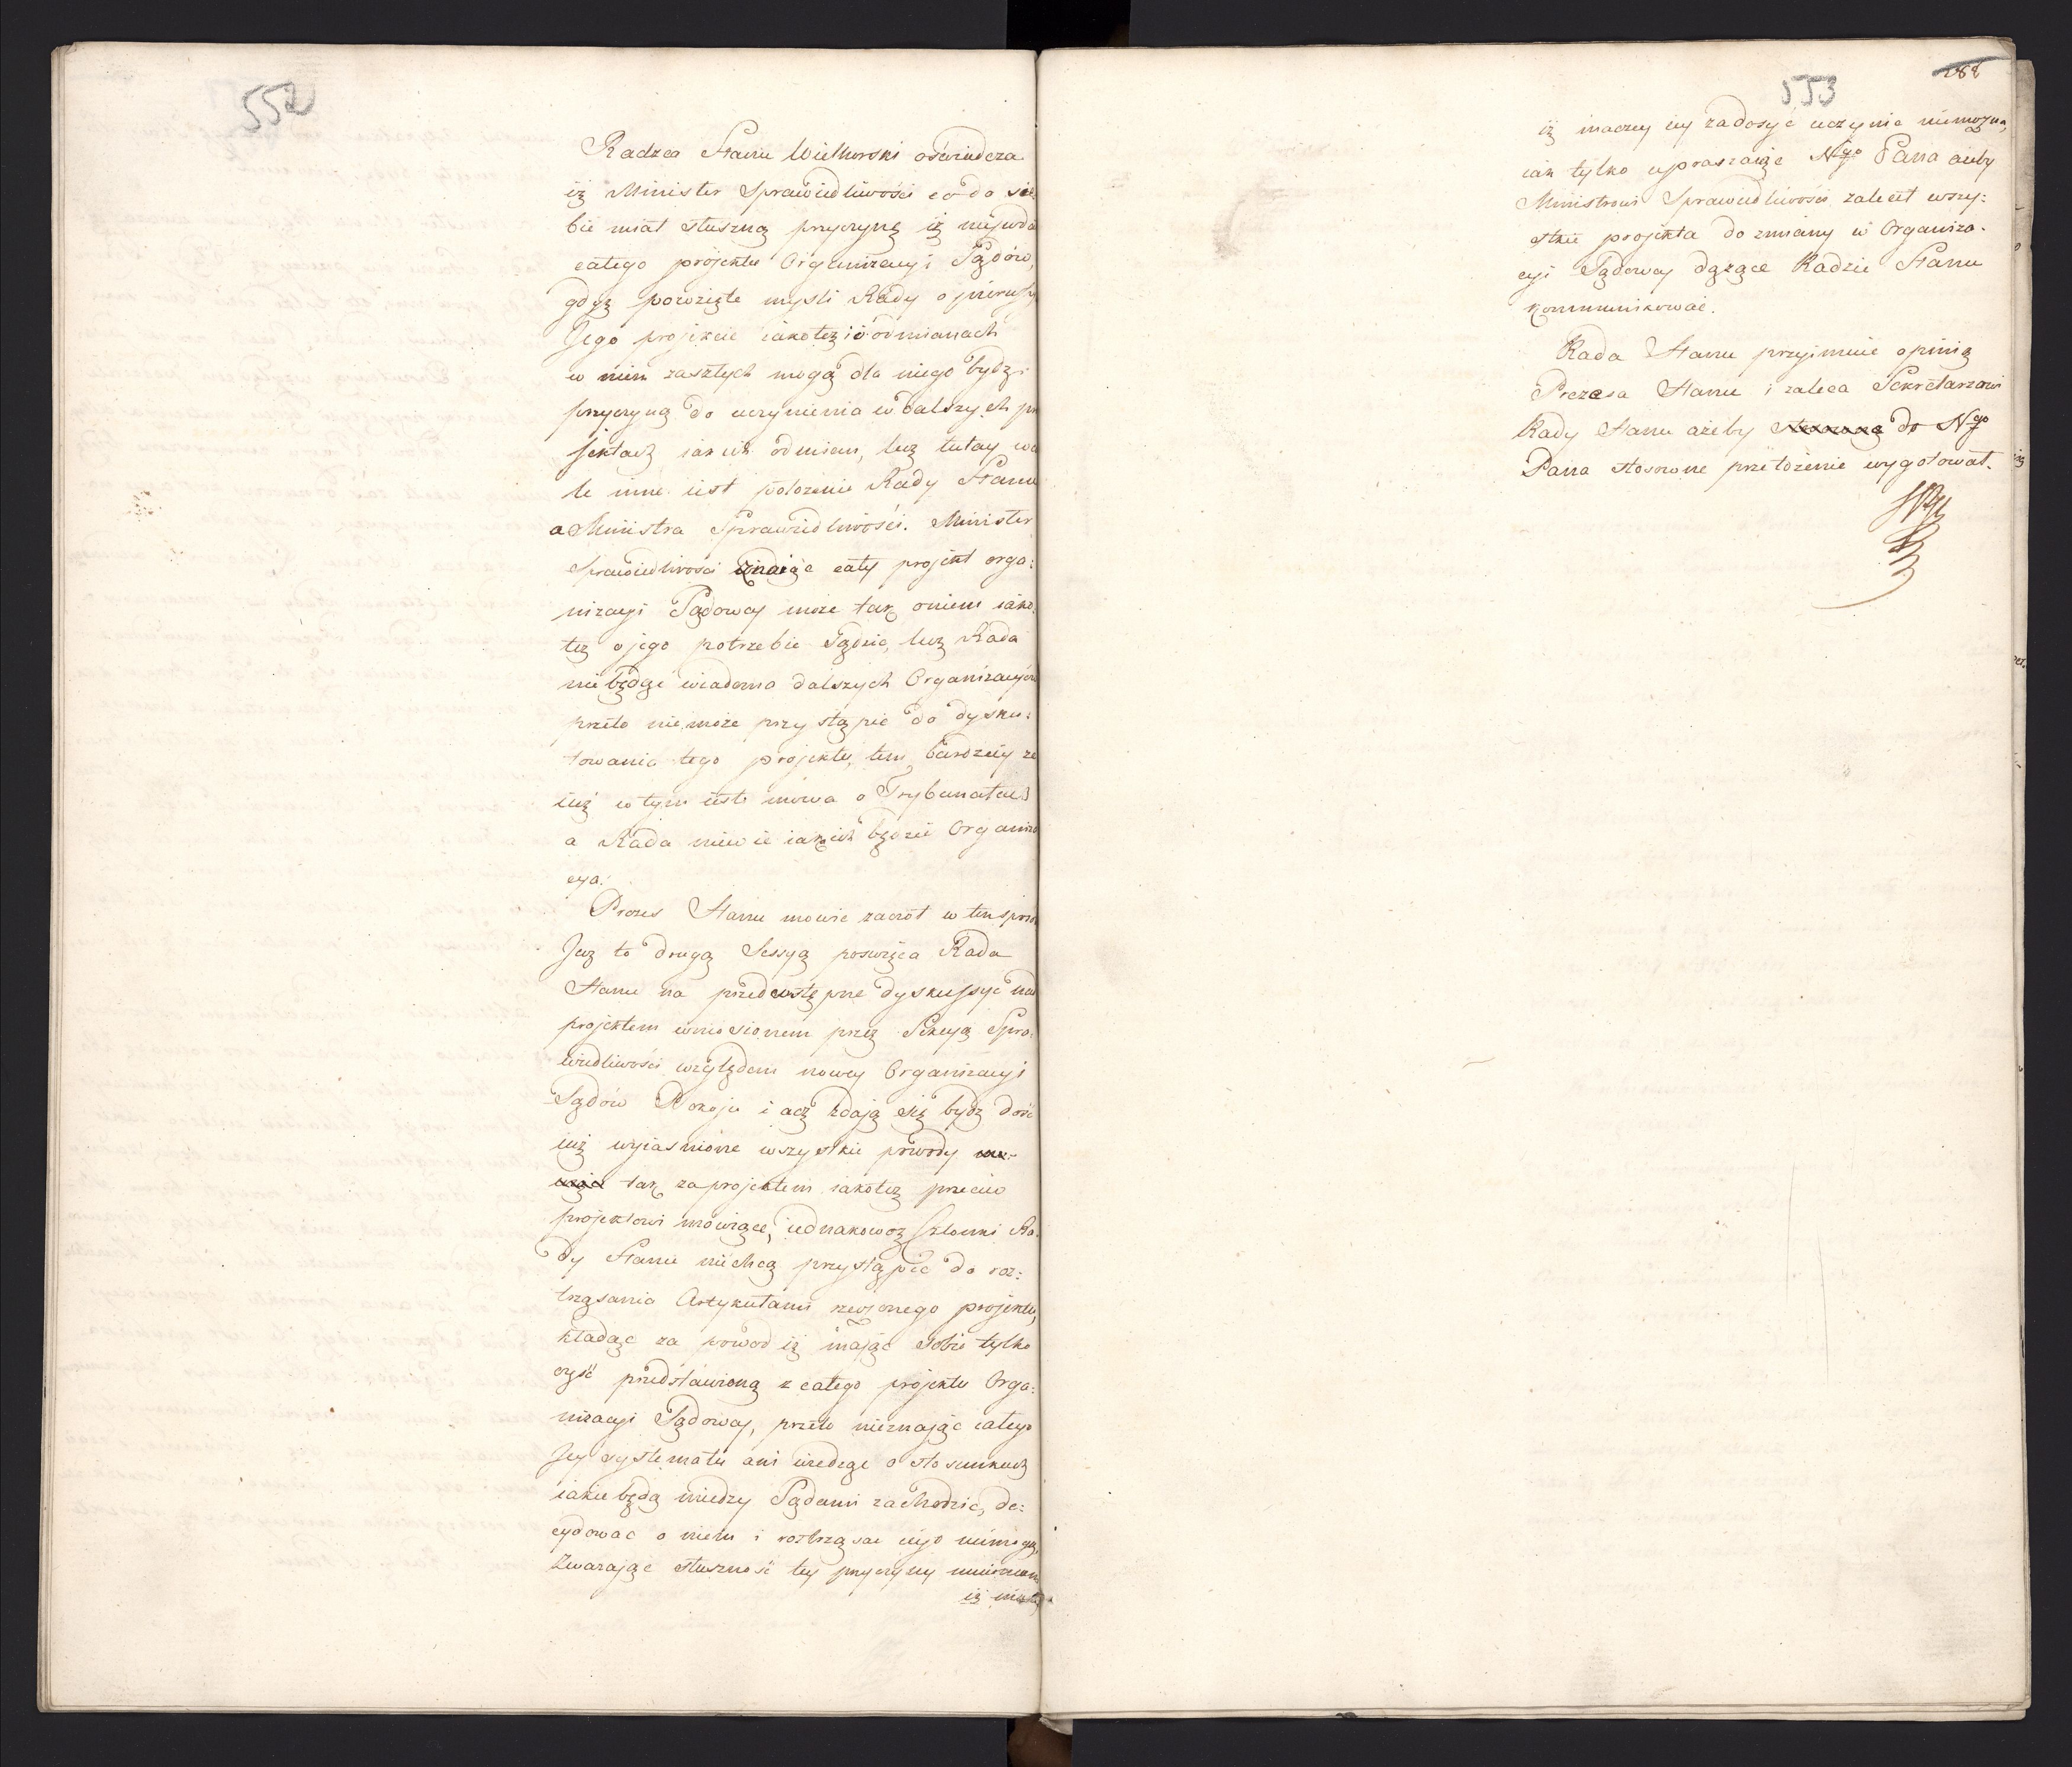 552
Radzca Stanu Wielhorski oświadcza
iż Minister Sprawiedliwości co do sie
bie miał słuszną przyczynę iż niewda
całego projektu Organizacyi Sądów,
gdyż powzięte myśli Rady o pierwszym
Jego projekcie iako też i o odmianach
w nim zaszłych mogą dla niego bydź
przyczyną do uczynienia w dalszych pro
jektach iakich odmian, lecz tutay wca
le inne iest położenie Rady Stanu
a Ministra Sprawiedliwości. Minister
Sprawiedliwości znaiąc cały projekt orga:
nizacyi Sądowey może tak oniem iako
też o jego potrzebie sądzić, lecz Rada
niebędąc wiadoma dalszych Organizacyów
przeto nie może przystąpić do dysku:
towania tego projektu, tem bardziey że
iuż w tym iest mowa o Trybunałach
a Rada niewie iaka ich będzie Organiza
cya.
Prezes Stanu mówić zaczął w ten sposób
Już to drugą Sessyą poswięca Rada
Stanu na przedwstępne dyskussye nad
projektem wniesionem przez Sekcyą Spra:
wiedliwości względem nowey Organizacyi
Sądów Pokoju i acz zdają się bydź dość
iuż wyiasnione wszystkie powody
tak za projektem iakoteż przeciw
projektowi mówiące, iednakowoż Członki Ra:
dy Stanu niechcą przystąpić do roz:
trząsania Artykułami rzeczonego projektu,
kładąc za powod iż mając sobie tylko
część przedstawioną z całego projektu Orga:
nizacyi Sądowey, przeto nieznając całego
Jey systematu ani wiedząc o stosunkach
iakie będą między Sądami zachodzić, de:
cydować o niem i roztrząsać iego niemogą,
Zważając słuszność tey przyczyny mniemam
iż inaczey
553
288
iż inaczey iey zadosyć uczynić niemożna,
iak tylko upraszaiąc Nżgo Pana aieby
Ministrowi Sprawiedliwości zalecił wszy:
stkie projekta do zmiany w Organiza:
cyi Sądowey dążące Radzie Stanu
kommunikować.
Rada Stanu przyimuie opinią
Prezesa Stanu i zaleca Sekretarzowi
Rady Stanu ażeby do Nżgo
Pana stosowne przełożenie wygotował.